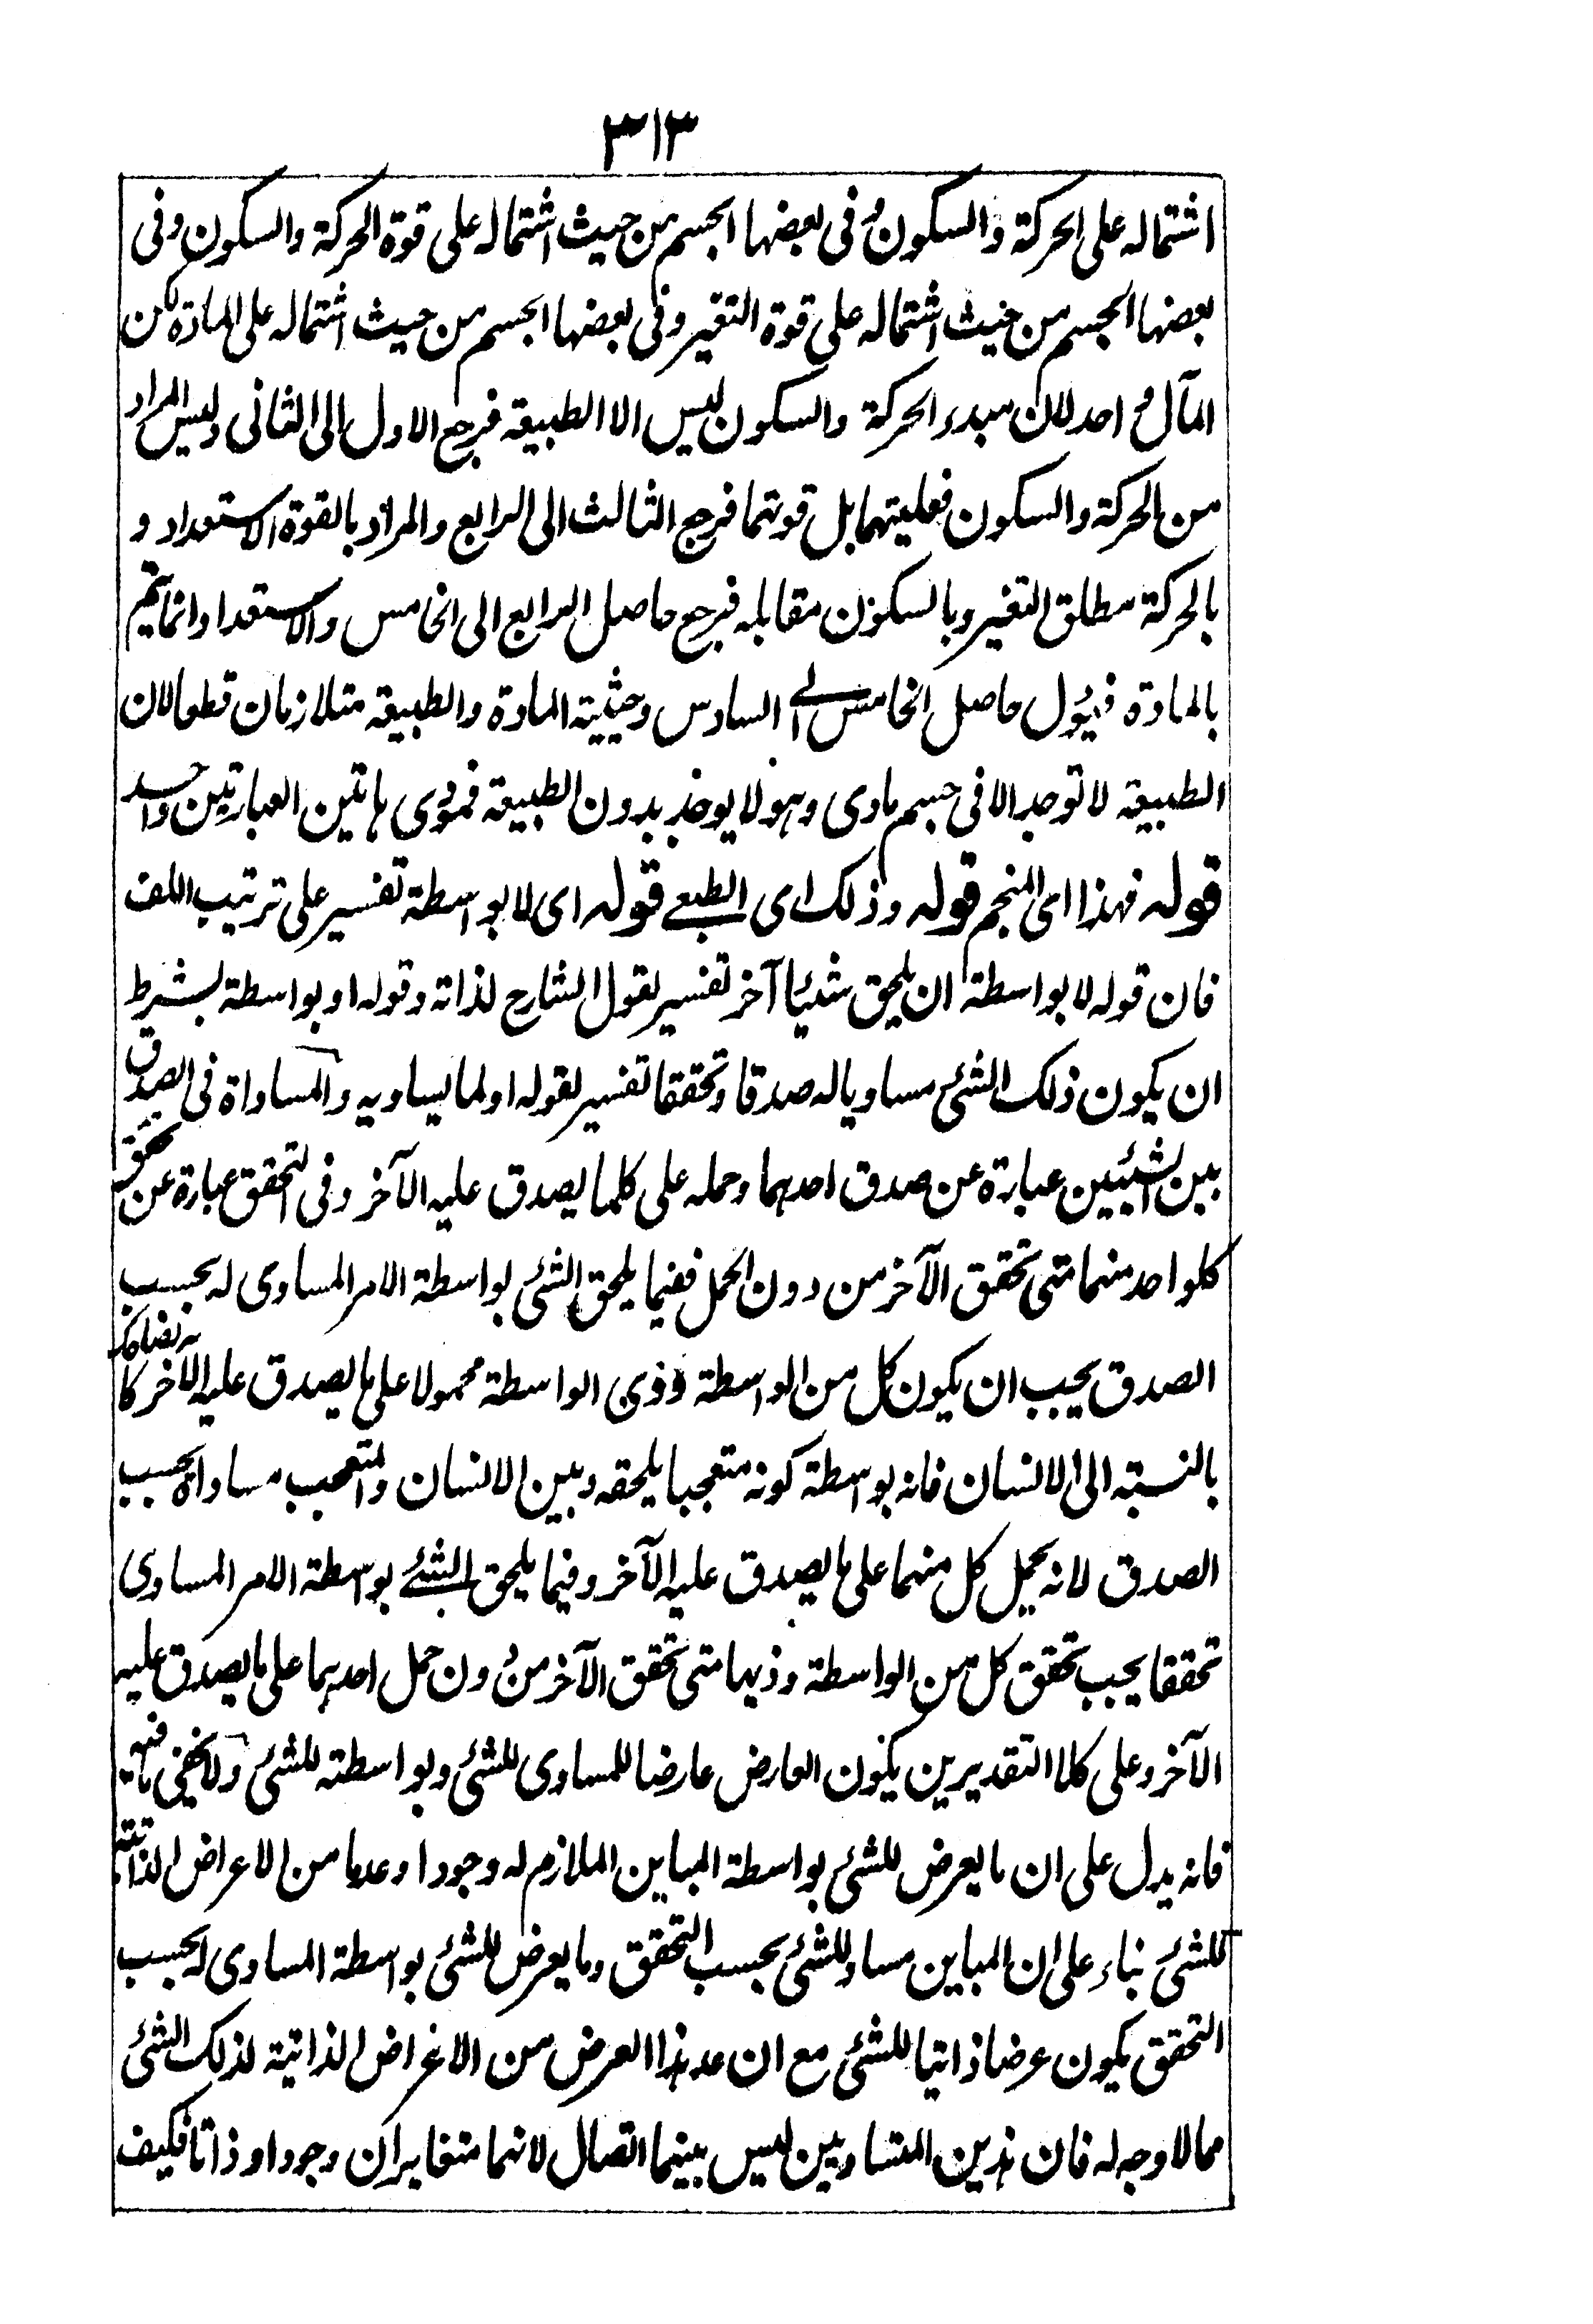 ٣١٣
اشتماله على الحركة والسكون وفى بعضها الجسم من حيث اشتماله على قوة الحركة والسكون وفى
بعضها الجسم من حيث اشتماله على قوة التغير وفى بعضها الجسم من حيث اشتماله على المادة لكن
المآل واحد لان مبدء الحركة والسكون ليس الا الطبيعة فرجع الاول الى الثانى وليس المراد
من الحركة والسكون فعليتهما بل قوتهما فرجع الثالث الى الرابع والمراد بالقوة الاستعداد و
بالحركة مطلق التغير وبالسكون مقابله فيرجع حاصل الرابع الى الخامس والاستعداد انما يتم
بالمادة فيؤل حاصل الخامس الى السادس وحيثية المادة والطبيعة متلازمان قطعا لان
الطبيعة لا توجد الا فى جسم مادى وهو لا يوجد بدون الطبيعة فمؤدى هاتين العبارتين واحد
قوله فهذا اى المنجم قوله وذلك اى الطبعى قوله اى لا بواسطة تفسير على ترتيب اللف
فان قوله لا بواسطة ان يلحق شيئا آخر تفسير لقول الشارح لذاته وقوله او بواسطة بشرط
ان يكون ذلك الشئ مساويا له صدقا وتحققا تفسير لقوله او لما يساويه والمساواة فى الصدق
بين الشيئين عبارة عن صدق احدهما وحمله على كلما يصدق عليه الآخر وفى التحقق عبارة عن تحقق
كلواحد منهما متى تحقق الآخر من دون الحمل ففيما يلحق الشئ بواسطة الامر المساوى له بحسب
الصدق يجب ان يكون كل من الواسطة وذى الواسطة محمولا على ما يصدق عليه الآخر كالضاحك
بالنسبة الى الانسان فانه بواسطة كونه متعجبا يلحقه وبين الانسان والمتعجب مساواة بحسب
الصدق لانه يحمل كل منهما على ما يصدق عليه الآخر وفيما يلحق الشئ بواسطة الامر المساوى
تحققا يجب تحقق كل من الواسطة وذيها متى تحقق الآخر من دون حمل احدهما على ما يصدق عليه
الآخر وعلى كلا التقديرين يكون العارض عارضا للمساوى للشئ وبواسطته للشئ ولا يخفى ما فيه
فانه يدل على ان ما يعرض للشئ بواسطة المباين الملازم له وجودا وعدما من الاعراض الذاتية
للشئ بناء على ان المباين مساو للشئ بحسب التحقق وما يعرض للشئ بواسطة المساوى له بحسب
التحقق يكون عرضا ذاتيا للشئ مع ان عد هذا العرض من الاعراض الذاتية لذلك الشئ
مما لا وجه له فان هذين المتساويين ليس بينهما اتصال لانهما متغايران وجودا وذاتا فكيف